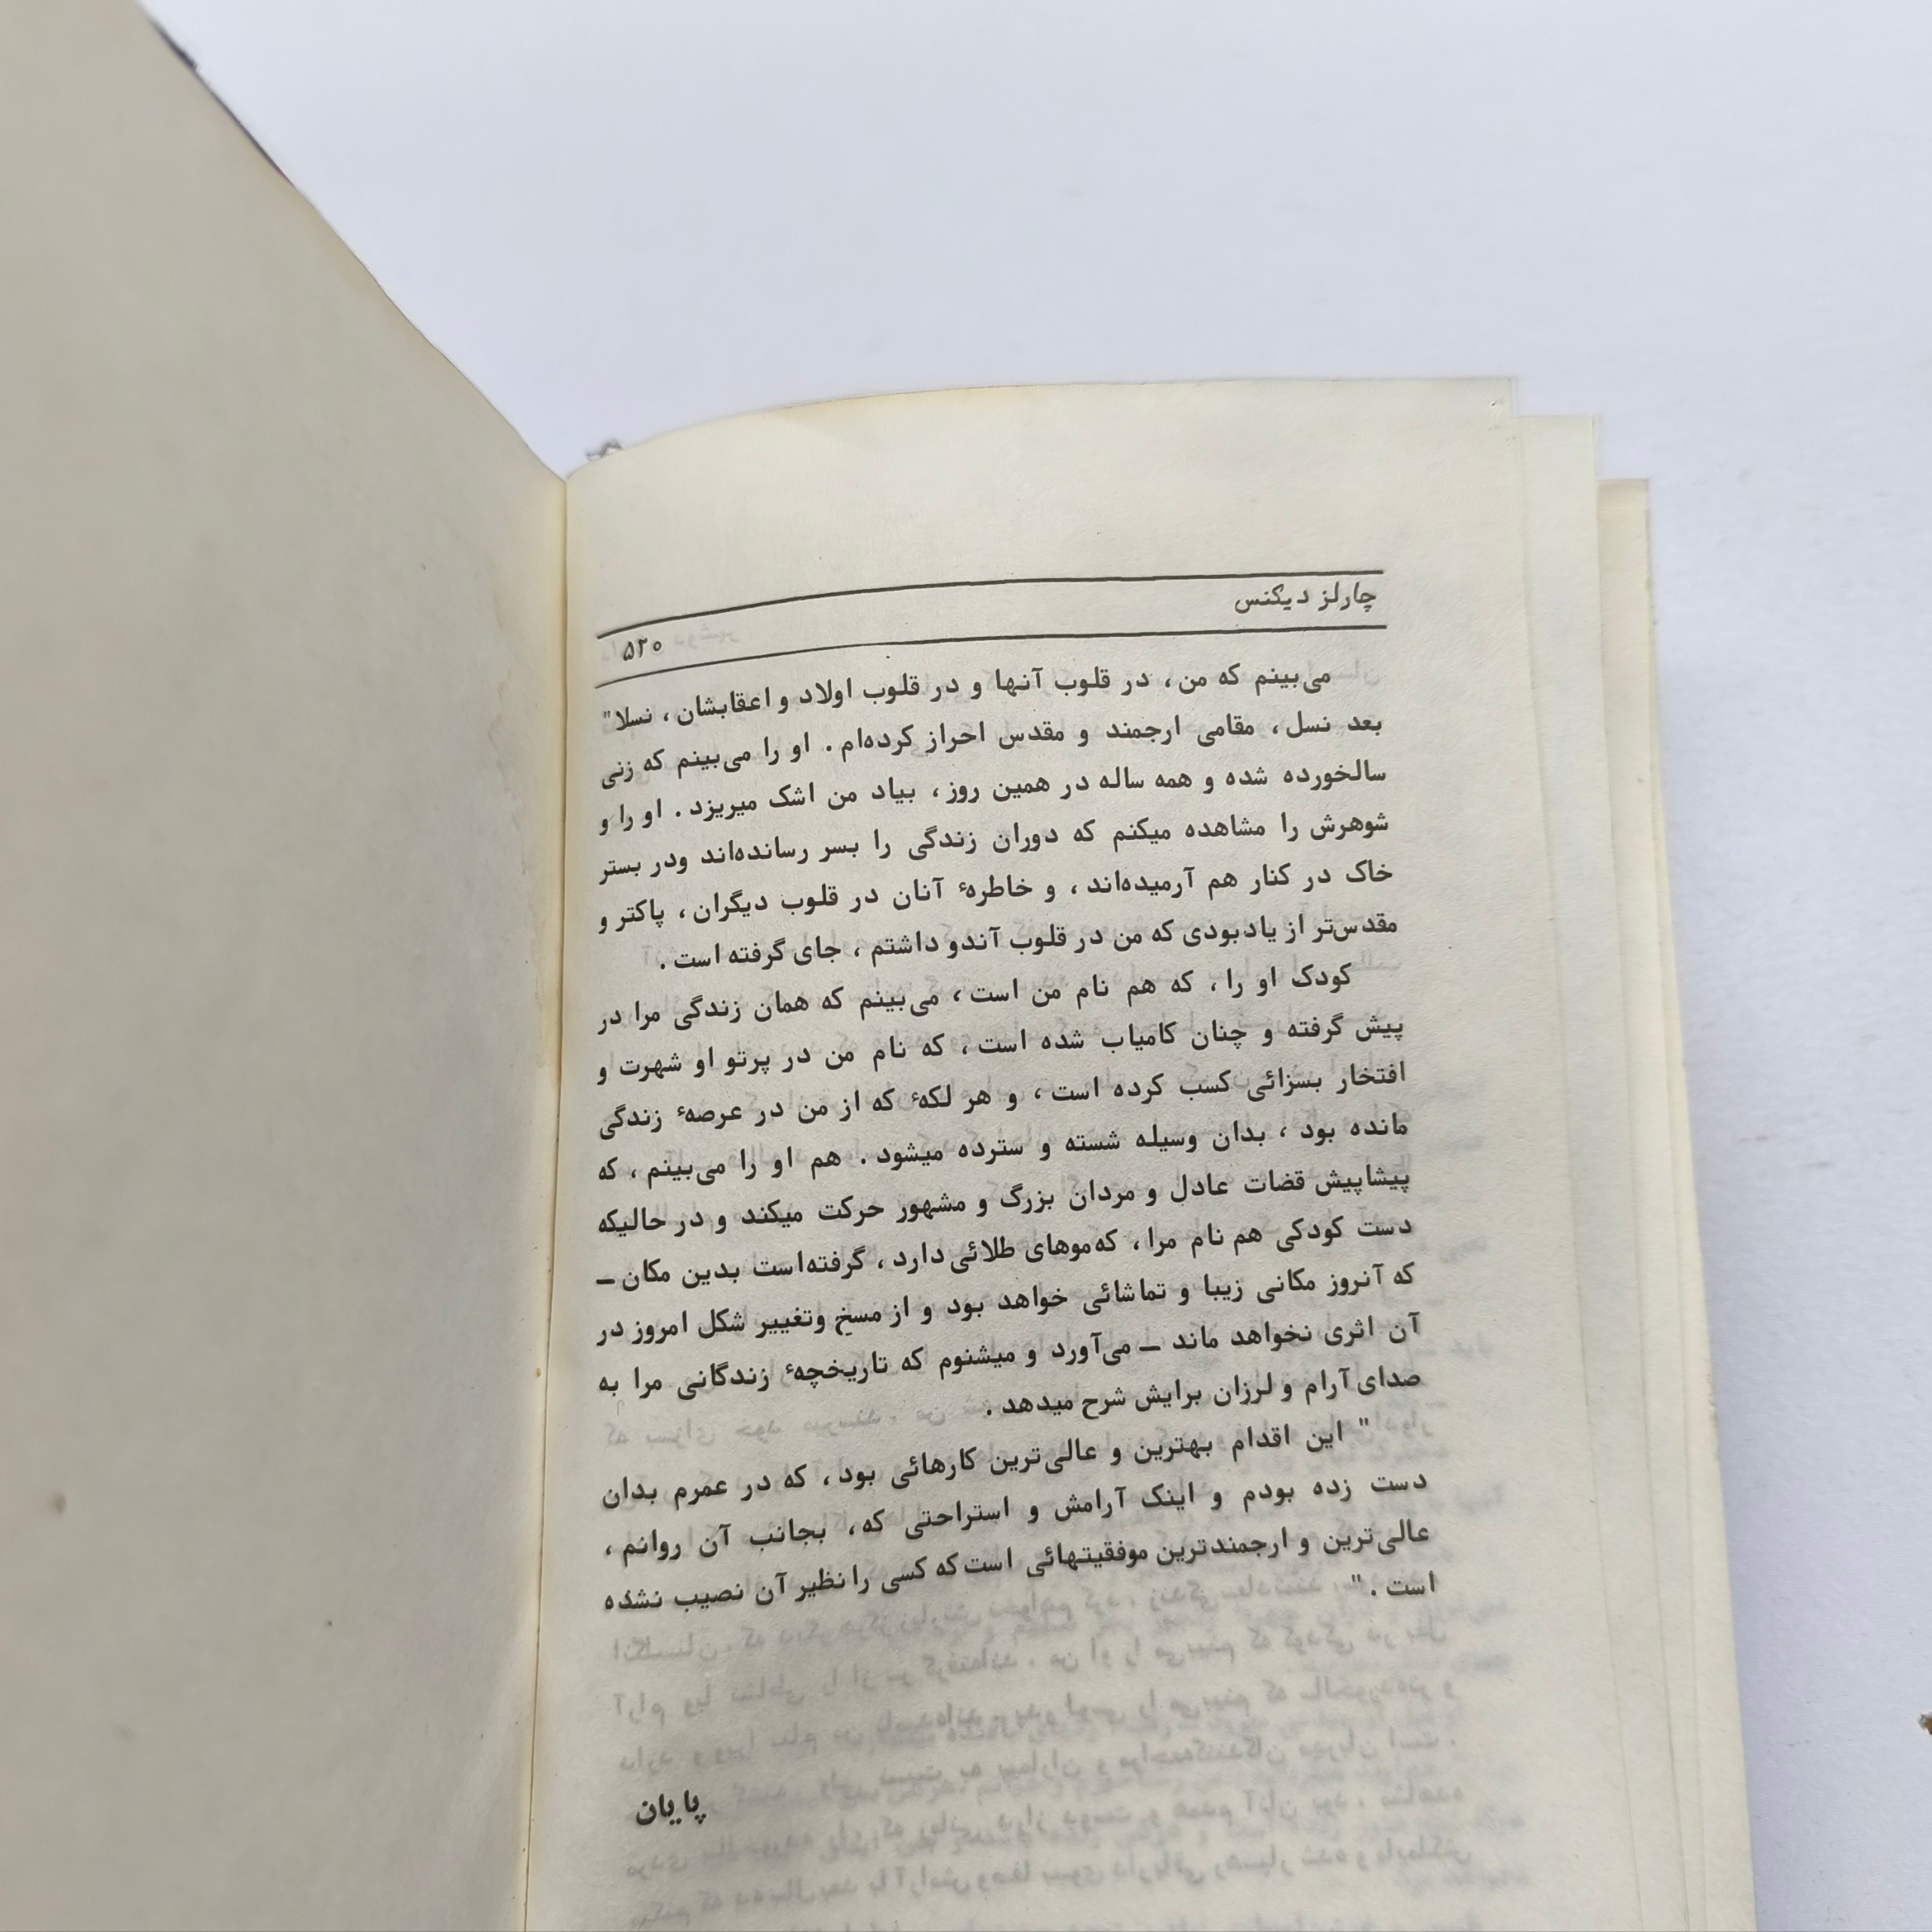 چارلز دیکنس
۵۲۰
می‌بینم که من، در قلوب آنها و در قلوب اولاد و اعقابشان، نسلا"
بعد نسل، مقامی ارجمند و مقدس احراز کرده‌ام. او را می‌بینم که زنی
سالخورده شده و همه ساله در همین روز، بیاد من اشک میریزد. او را و
شوهرش را مشاهده میکنم که دوران زندگی را بسر رسانده‌اند ودر بستر
خاک در کنار هم آرمیده‌اند، و خاطرهٔ آنان در قلوب دیگران، پاکتر و
مقدس‌تر از یادبودی که من در قلوب آندو داشتم، جای گرفته است.
کودک او را، که هم نام من است، می‌بینم که همان زندگی مرا در
پیش گرفته و چنان کامیاب شده است، که نام من در پرتو او شهرت و
افتخار بسزائی کسب کرده است، و هر لکهٔ که از من در عرصهٔ زندگی
مانده بود، بدان وسیله شسته و سترده میشود. هم او را می‌بینم، که
پیشاپیش قضات عادل و مردان بزرگ و مشهور حرکت میکند و در حالیکه
دست کودکی هم نام مرا، که‌موهای طلائی دارد، گرفته‌است بدین مکان –
که آنروز مکانی زیبا و تماشائی خواهد بود و از مسخ وتغییر شکل امروز در
آن اثری نخواهد ماند – می‌آورد و میشنوم که تاریخچهٔ زندگانی مرا به
صدای آرام و لرزان برایش شرح میدهد.
" این اقدام بهترین و عالی‌ترین کارهائی بود، که در عمرم بدان
دست زده بودم و اینک آرامش و استراحتی که، بجانب آن روانم،
عالی‌ترین و ارجمندترین موفقیتهائی است که کسی را نظیر آن نصیب نشده
است."
پایان